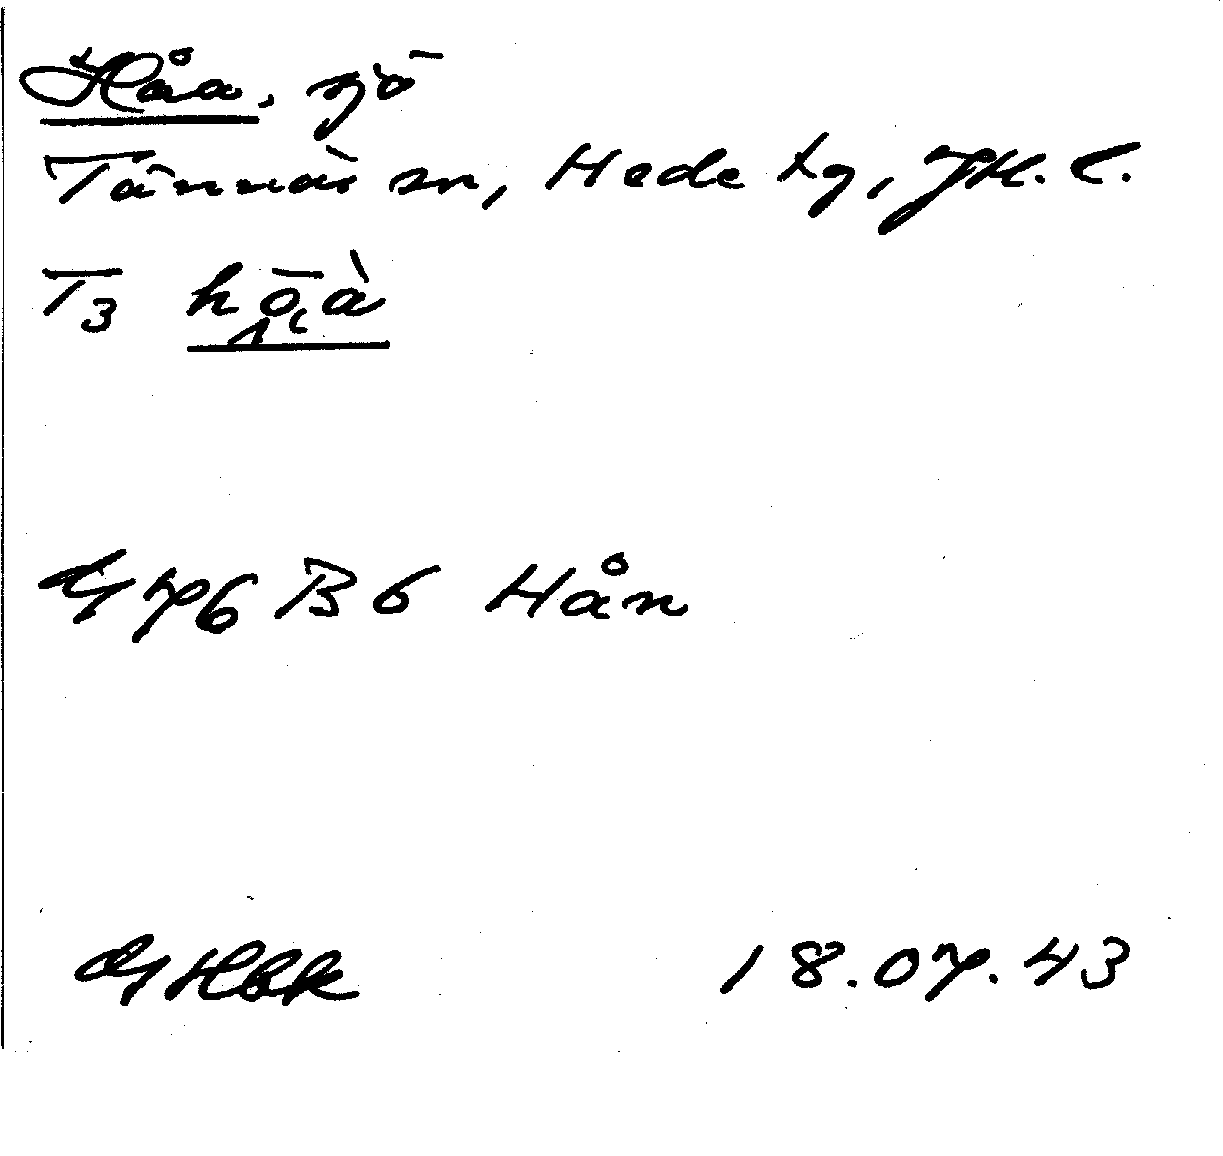 Håa, sjö
Tännäs sn, Hede tg, Jtl. l.
T3 hō̜à
G 76 B 6 Hån
G Hbk 18.07.43